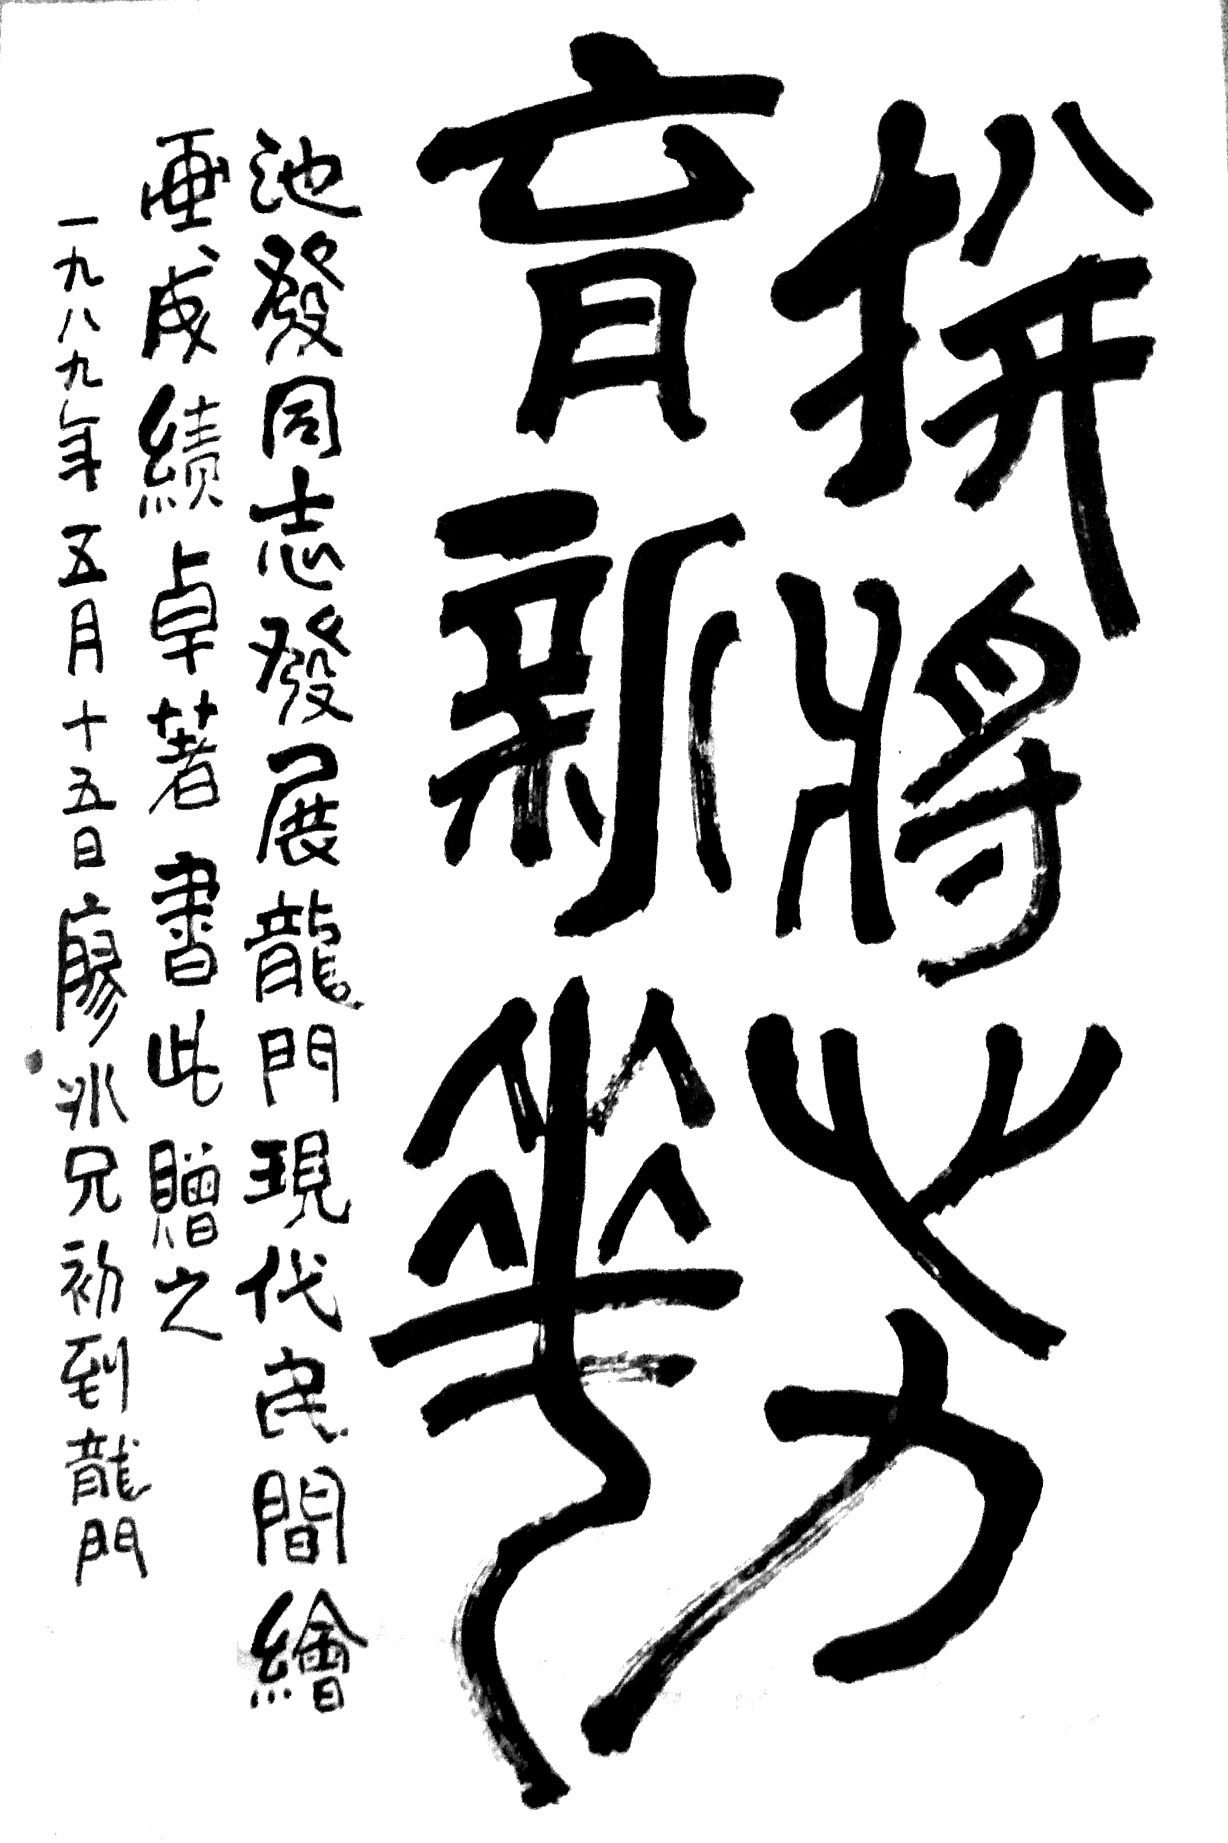 拼將心力
育新華
池發同志發展龍門現代民間繪
画成績卓著書此贈之
一九八九年五月十五日廖冰兄初到龍門